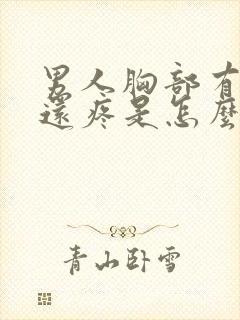 男人胸部有
還疼是怎麼
青山卧雪